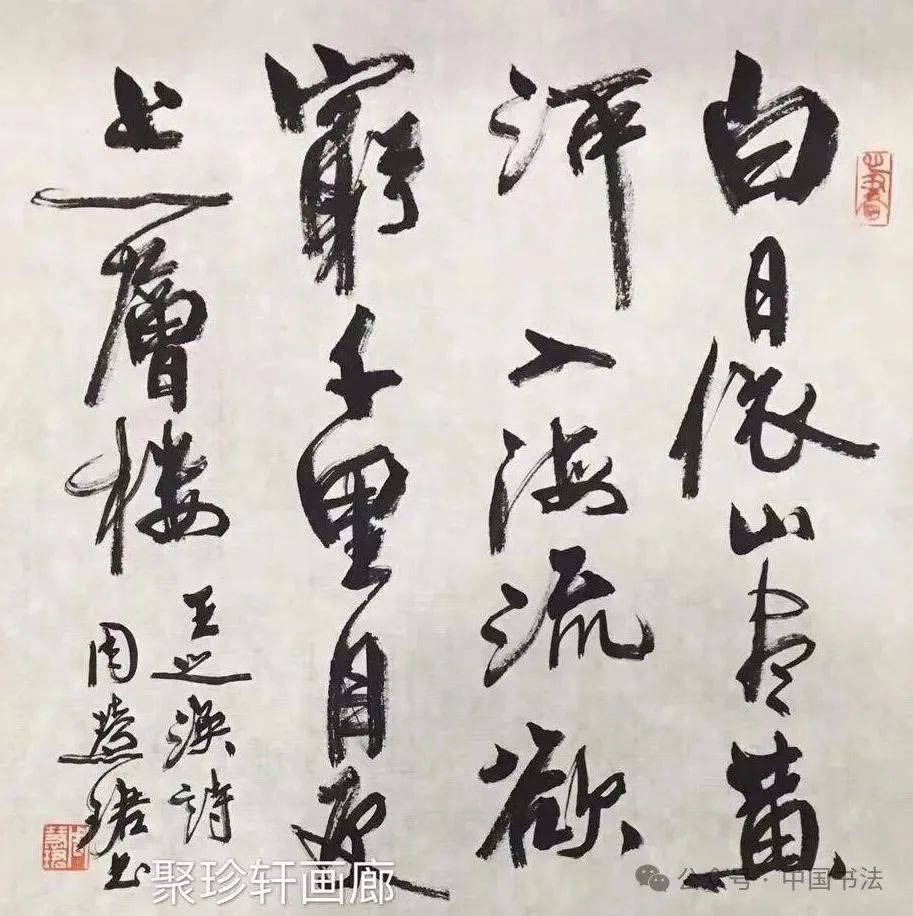 白日依山尽黄
河入海流欲
窮千里目更
上一層楼
王之涣詩
周慧珺书
聚珍轩画廊
公众号·中国书法